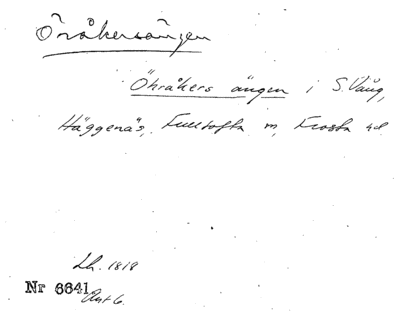 Öråkersängen
Öhråkers ängen i S. Vång,
Häggenäs, Fulltofta sn, Frosta hd.
Lh. 1818
Nr 6641
Akt 6.